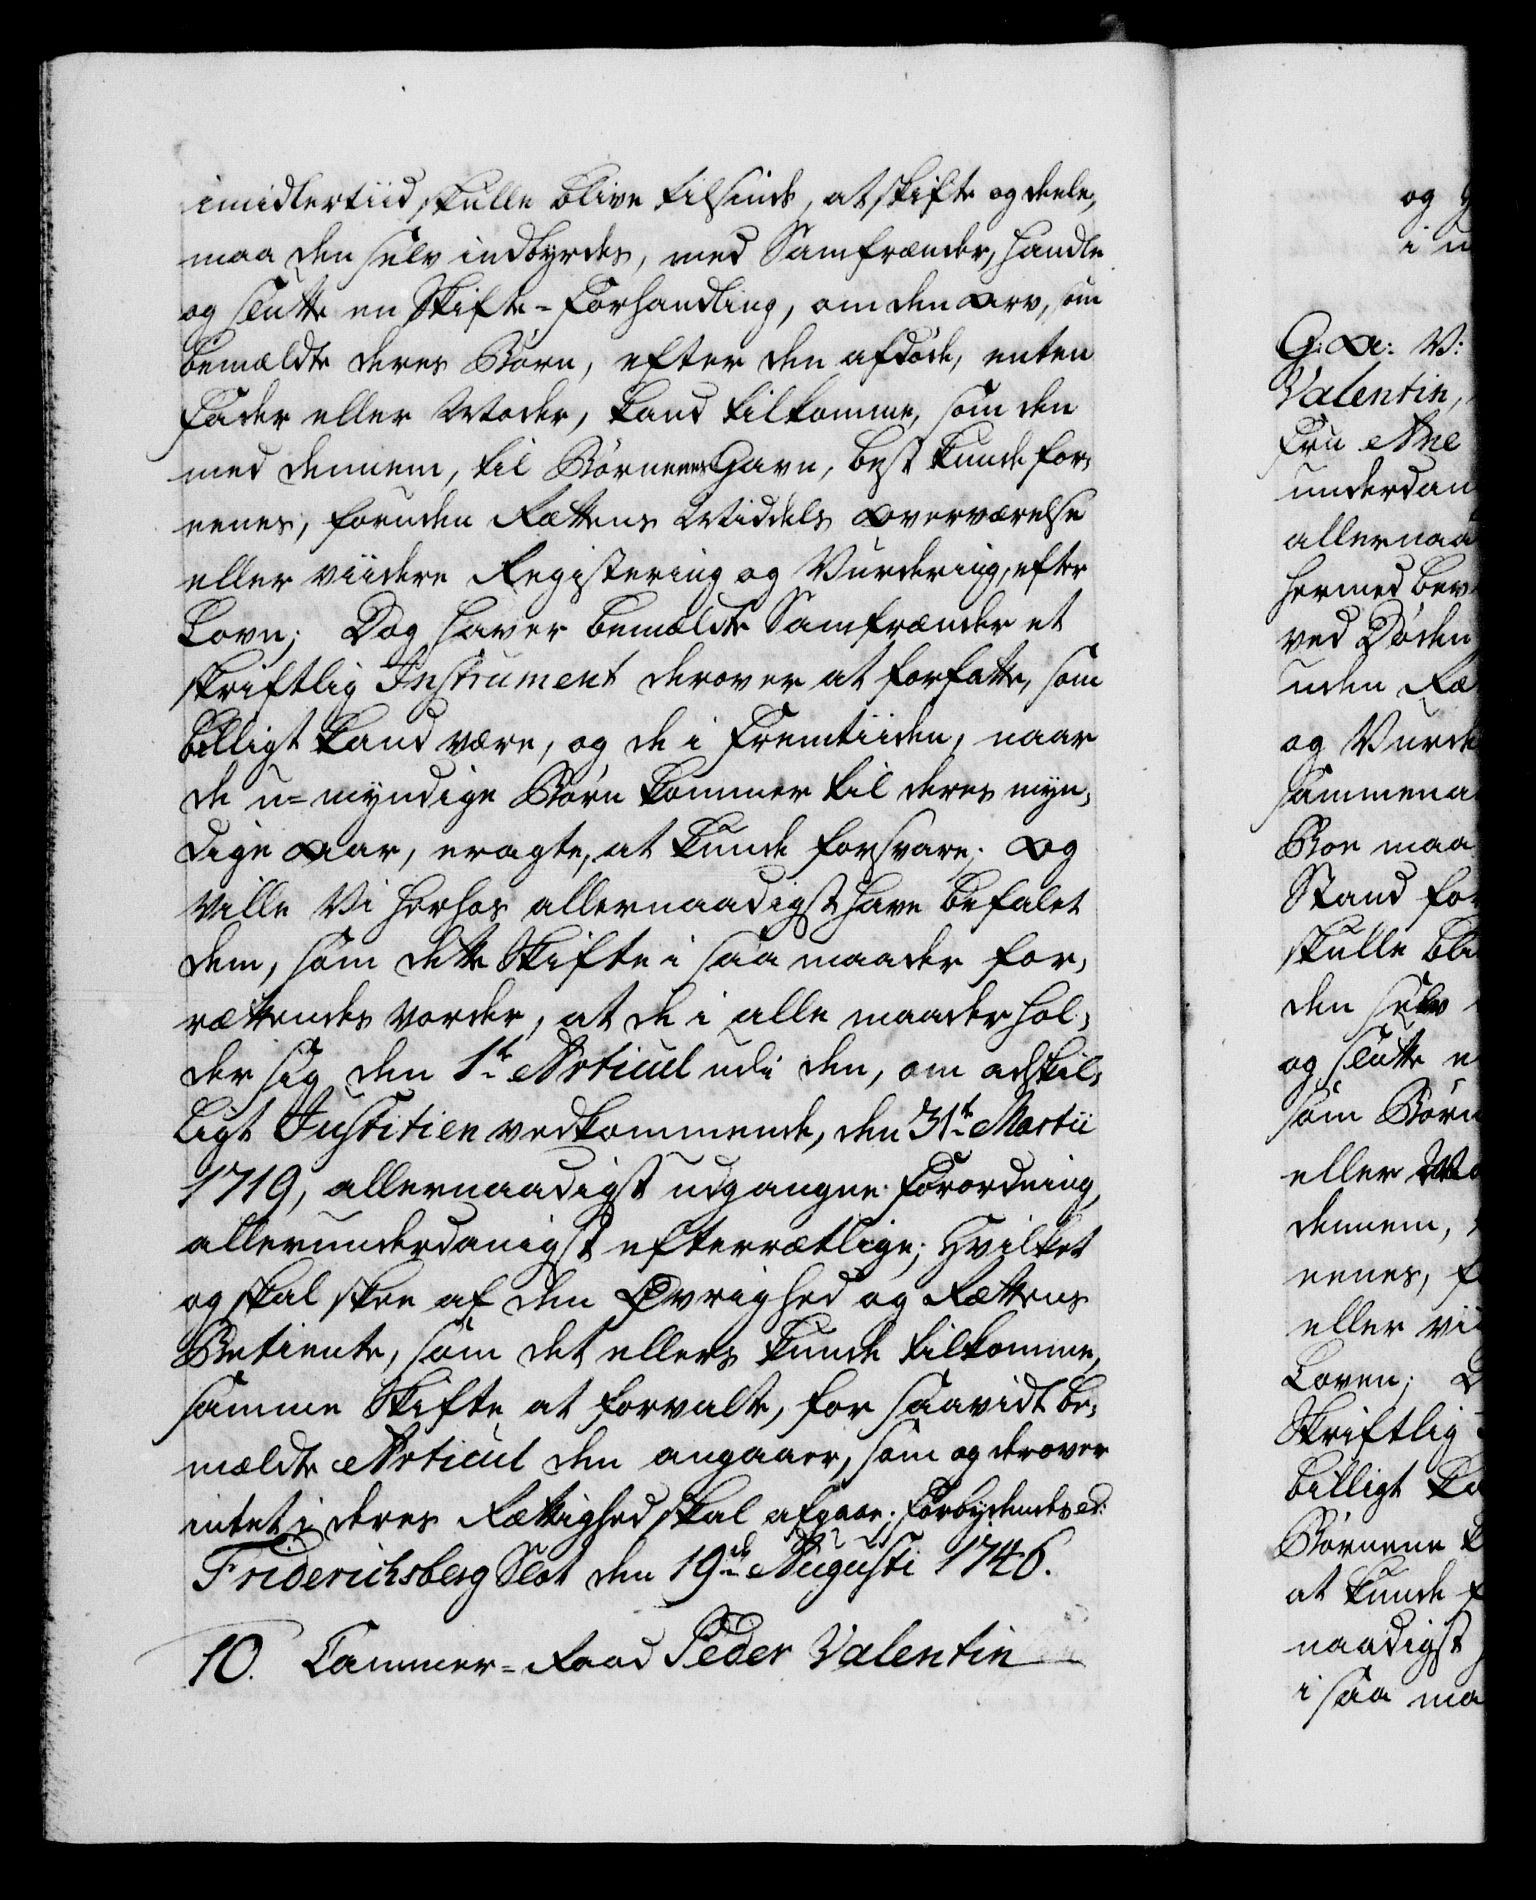 imidlertiid skulle blive tilsinds, at skifte og deele,
maa den selv indbyrdes, med Samfrænder, handle
og slutte en Skifte-Forhandling, om den Arv, som
bemældte deres Børn, efter den afdøde, enten
Fader eller Moder, kand tilkomme, som den
med dennem, til Børnenes Gavn, best kunde for-
eenes, foruden Rettens Middels Overværelse
eller viidere Registering og Vurdering, efter
Lovn; Dog haver bemældte Samfrænder et
skriftlig Instrument derover at forfatte, som
billigt kand være, og de i Fremtiiden, naar
de u-myndige Børn kommer til deres myn-
dige Aar, eragte, at kunde forsvare; Og
ville Vi herhos allernaadigst have befalet
dem, som dette Skifte i saa maader for-
rættendes vorder, at de i alle maader hol-
der sig den 1te Articul udi den, om adskil-
ligt Justitien vedkommende, den 31te Martii
1719, allernaadigst udgangne Forordning,
allerunderdanigst efterrætlige; Hvilket
og skal skee af den Øvrighed og Rettens
Betiente, som det ellers kunde tilkomme,
samme Skifte at forvalte, for saavidt be-
mældte Articul den angaaer, som og derover
intet i deres Rettighed skal afgaae; Forbydendes etc:
Friderichsberg Slot den 19de Augusti 1746.
10. Cammer-Raad Peder Valentin
og
i
G: A: V:
Valentin,
Fru Ane
underdan
allernaa
hermed bev
ved Døden
uden Ræ
og Vurde
sammena
Boe maa
Stand for
skulle bli
den selv
og slutte e
som Børn
eller Mo
dennem,
eenes, f
eller vi
Loven; D
Skriftlig
billigt ka
Børnene k
at kunde f
naadigst
i saa ma